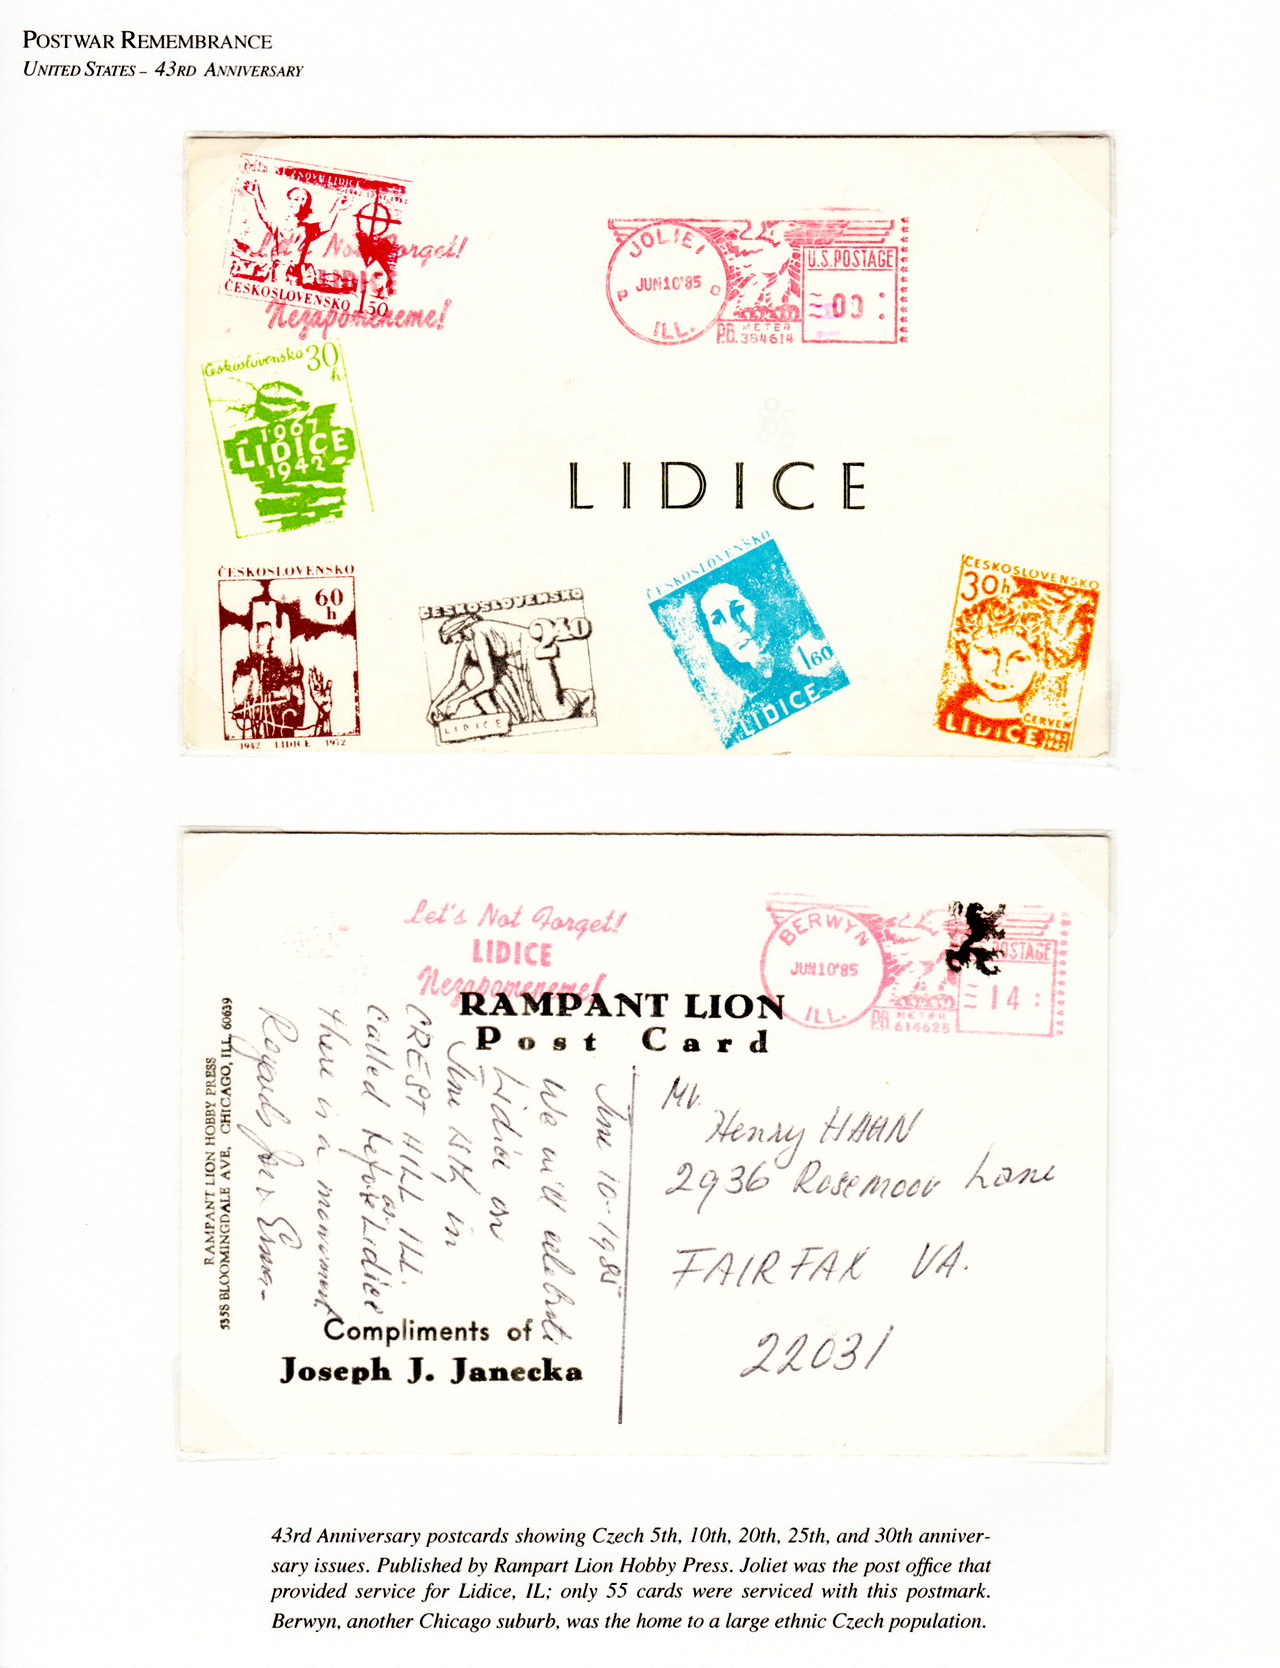 POSTWAR REMEMBRANCE
UNITED STATES – 43RD ANNIVERSARY
LIDICE
ČESKOSLOVENSKO 1,50
Let's Not Forget!
LIDICE
Nezapomeneme!
JOLIET
P O
JUN10'85
ILL.
U.S. POSTAGE
00
P.B. METER
384614
Československo 30
h
1967
LIDICE
1942
LIDICE
ČESKOSLOVENSKO
60
h
1942 LIDICE 1972
ČESKOSLOVENSKO
240
LIDICE
ČESKOSLOVENSKO
1 60
LIDICE
ČESKOSLOVENSKO
30h
LIDICE
ČERVEN
1942
Let's Not Forget!
LIDICE
Nezapomeneme!
BERWYN
JUN10'85
ILL.
POSTAGE
14
P.B. METER
614625
RAMPANT LION
Post Card
RAMPANT LION HOBBY PRESS
5358 BLOOMINGDALE AVE, CHICAGO, ILL. 60639
June 10-1985
We will celebrate
Lidice on
June 14, in
CREST HILL ILL.
called before as Lidice
there is a monument
Regards Joe & Emma-
Compliments of
Joseph J. Janecka
Mr.
Henry HAHN
2936 Rosemoor Lane
FAIRFAX VA.
22031
43rd Anniversary postcards showing Czech 5th, 10th, 20th, 25th, and 30th anniver-
sary issues. Published by Rampart Lion Hobby Press. Joliet was the post office that
provided service for Lidice, IL; only 55 cards were serviced with this postmark.
Berwyn, another Chicago suburb, was the home to a large ethnic Czech population.